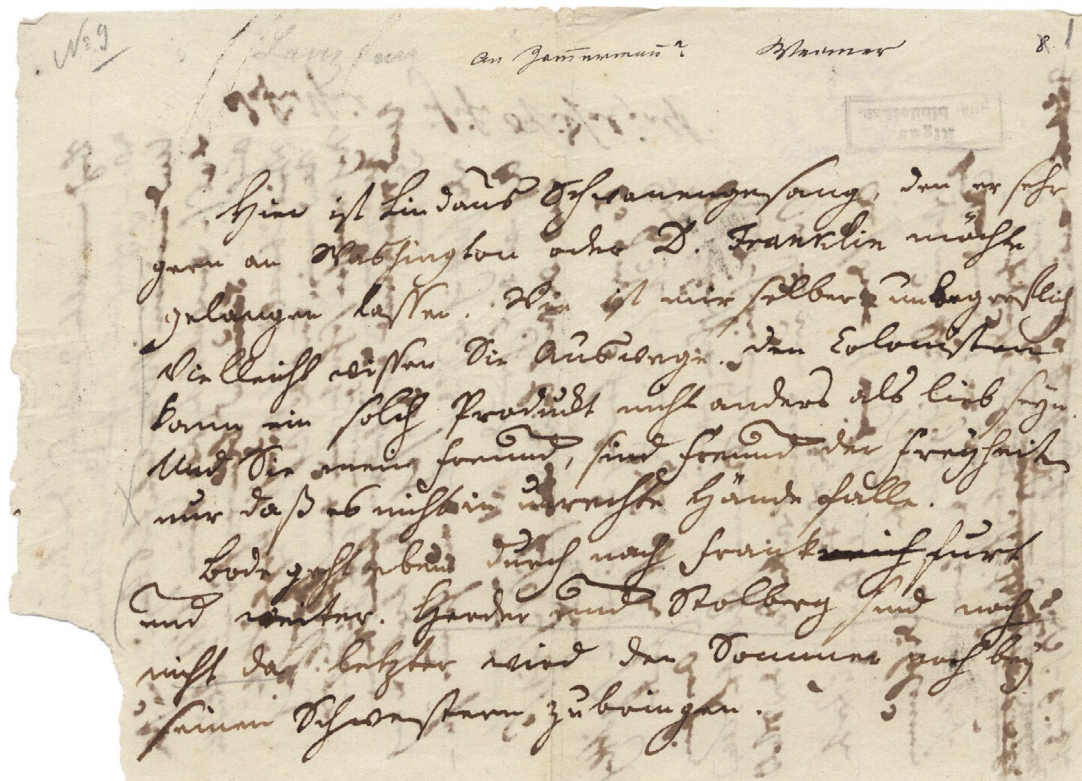 No 9
An Zimmermann? Weimar 8
Hier ist Lindaus Schwanengesang, den er sehr
gern an Washington oder D. Franklin möchte
gelangen lassen. Wie ist mir selber unbegreiflich
Vielleicht wissen Sie Auswege. Den Colonisten
kann ein solch Produckt nicht anders als lieb seyn.
Und Sie mein Freund, sind Freund der Freyheit
nur daß es nicht in unrechte Hände falle.
Bode geht eben durch nach Frankreich furt
und weiter. Herder und Stolberg sind noch
nicht da letzter wird den Sommer noch bey
seinen Schwestern zubringen.